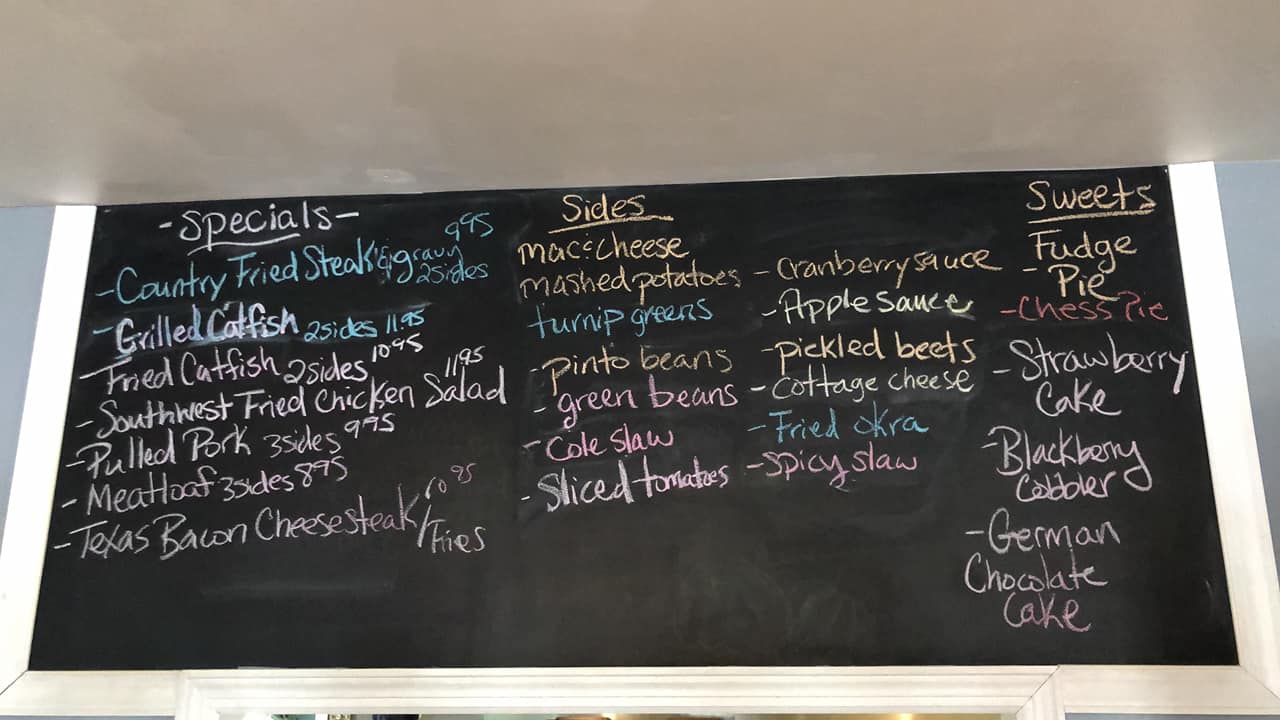 -Specials-
9.95
-Country Fried Steak & gravy
2sides
-Grilled Catfish 2sides 11.95
-Fried Catfish 2sides 10.95
11.95
-Southwest Fried Chicken Salad
-Pulled Pork 3sides 9.95
-Meatloaf 3sides 8.95
-Texas Bacon Cheesesteak/Fries 10.95
Sides
mac & cheese
mashed potatoes
turnip greens
-pinto beans
-green beans
-Cole slaw
-Sliced tomatoes
-Cranberry sauce
-Apple Sauce
-pickled beets
-Cottage cheese
-Fried okra
-Spicy slaw
Sweets
Fudge
-Pie
-Chess Pie
-Strawberry
Cake
-Blackberry
Cobbler
-German
Chocolate
Cake